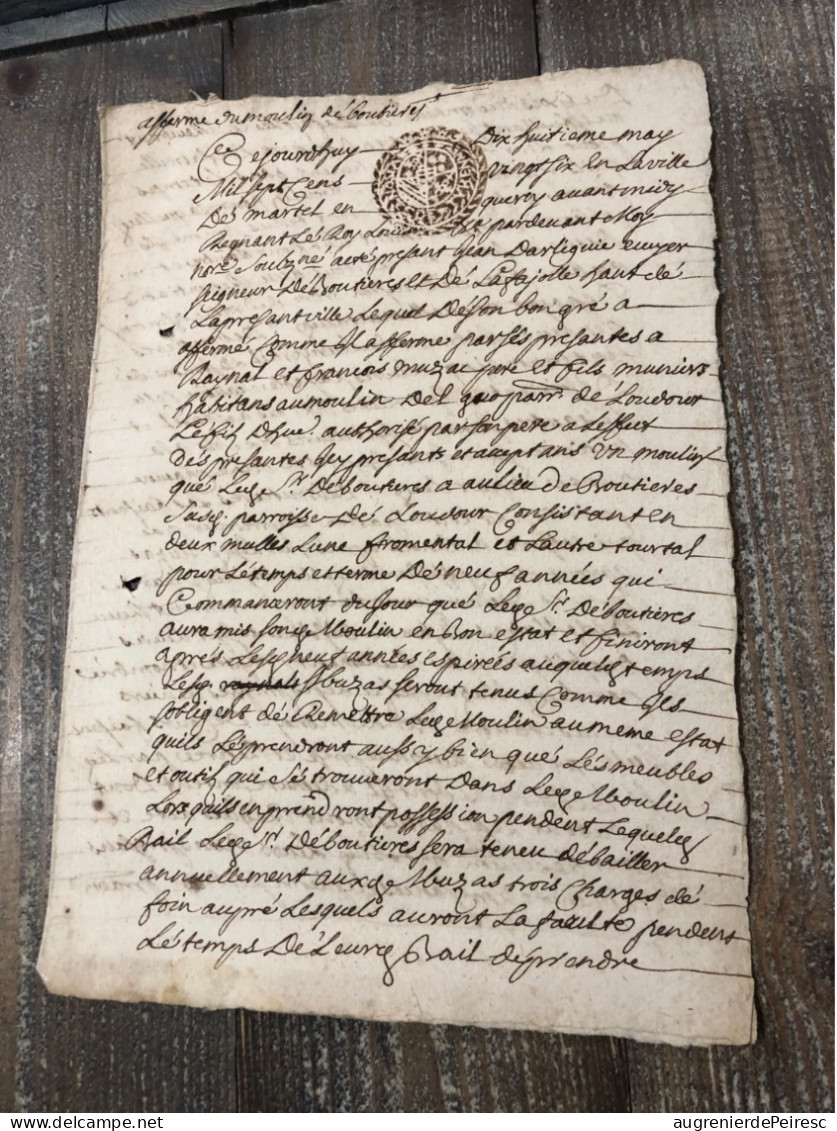 afferme du moulin de boutieres
Ce jourdhuy Dix huitieme may
Mil sept Cens vingt six En La ville
De martel en quercy avant midy
Regnant Le Roy Louis pardevant Moy
no.re Soubz.né a eté présant Jean Darliguie ecuyer
seigneur De Boutieres et De Lafajolle hant de
La présant ville Lequel De son bon gré a
afferme Comme Il afferme par sés présantes a
Raynal et francois muzac pere et fils muniers
habitans au moulin Del parr.e dé Loudour
Le fils authorisé par son pere a L effect
dés présantes Icy présants et aceptans un moulin
qué Led. S.r Dé boutieres a au lieu de Boutieres
Susd. parroisse Dé Loudour Consistant en
deux mulles Lune fromental et Lautre tourtal
pour Lé temps et terme Dé neuf années qui
Commanceront du Jour qué Led. S.r Dé boutieres
aura mis son Moulin en Bon estat et finiront
aprés Lesd. neuf années espirées auquel temps
Lesd. Muzas seront tenus Comme Ils
sobligent dé Remettre Led. Moulin au meme estat
quils Lé prendront aussy bien qué Lés meubles
et outils qui Sé trouveront Dans Led. Moulin
Lors quils en prendront possession pendent Lequel
Bail Led. S.r Dé Boutieres sera teneu dé bailler
annuellement auxd. Muzas trois Charges dé
foin au pré Lesquels auront La faculté pendent
Lé temps De Leur Bail dé prendre
augrenierdePeiresc